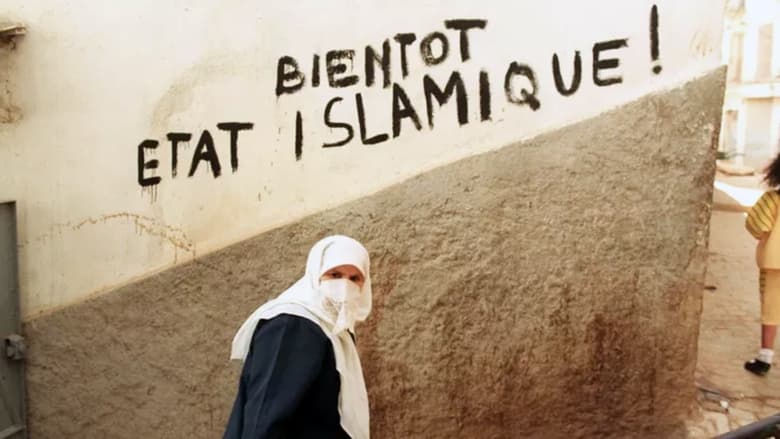 BIENTOT
ETAT ISLAMIQUE!